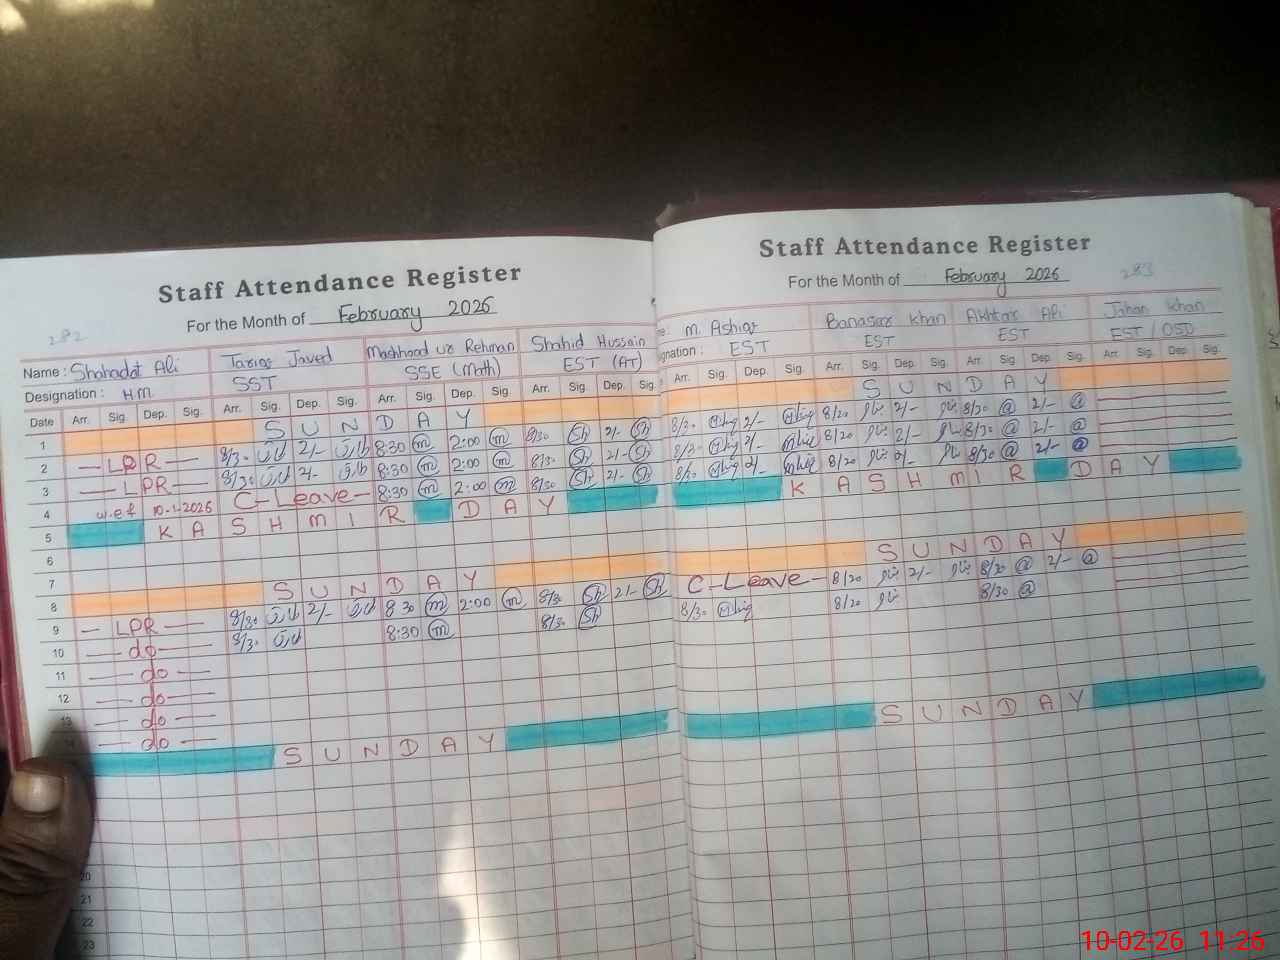 Staff Attendance Register
For the Month of February 2026
282
Name: Shahadat Ali Tariq Javed Mashhood ur Rehman Shahid Hussain
Designation: H.M. SST SSE (Math) EST (AT)
Date Arr. Sig. Dep. Sig. Arr. Sig. Dep. Sig. Arr. Sig. Dep. Sig. Arr. Sig. Dep. Sig.
1 SUNDAY
2 — LPR — 8/30 طارق 2/- طارق 8:30 m 2:00 m 8/30 Sh 2/- Sh
3 — LPR — 8/30 طارق 2/- طارق 8:30 m 2:00 m 8/30 Sh 2/- Sh
4 w.e.f 10-1-2026 C-Leave- 8:30 m 2:00 m 8/30 Sh 2/- Sh
5 KASHMIR DAY
6
7
8 SUNDAY
9 — LPR — 8/30 طارق 2/- طارق 8:30 m 2:00 m 8/30 Sh 2/- Sh
10 — do — 8/30 طارق 8:30 m 8/30 Sh
11 — do —
12 — do —
13 — do —
14 — do —
SUNDAY
20
21
22
23
Staff Attendance Register
For the Month of February 2026
283
M. Ashiq Banaras Khan Akhtar Ali Jahan Khan
Designation: EST EST EST EST/OSD
Arr. Sig. Dep. Sig. Arr. Sig. Dep. Sig. Arr. Sig. Dep. Sig. Arr. Sig. Dep. Sig.
SUNDAY
8/30 2/- 8/20 2/- 8/20 @ 2/- @
8/30 2/- 8/20 2/- 8/30 @ 2/- @
8/30 2/- 8/20 2/- 8/30 @ 2/- @
KASHMIR DAY
SUNDAY
C-Leave- 8/20 2/- 8/20 @ 2/- @
8/30 8/20 8/30 @
SUNDAY
10-02-26 11:26